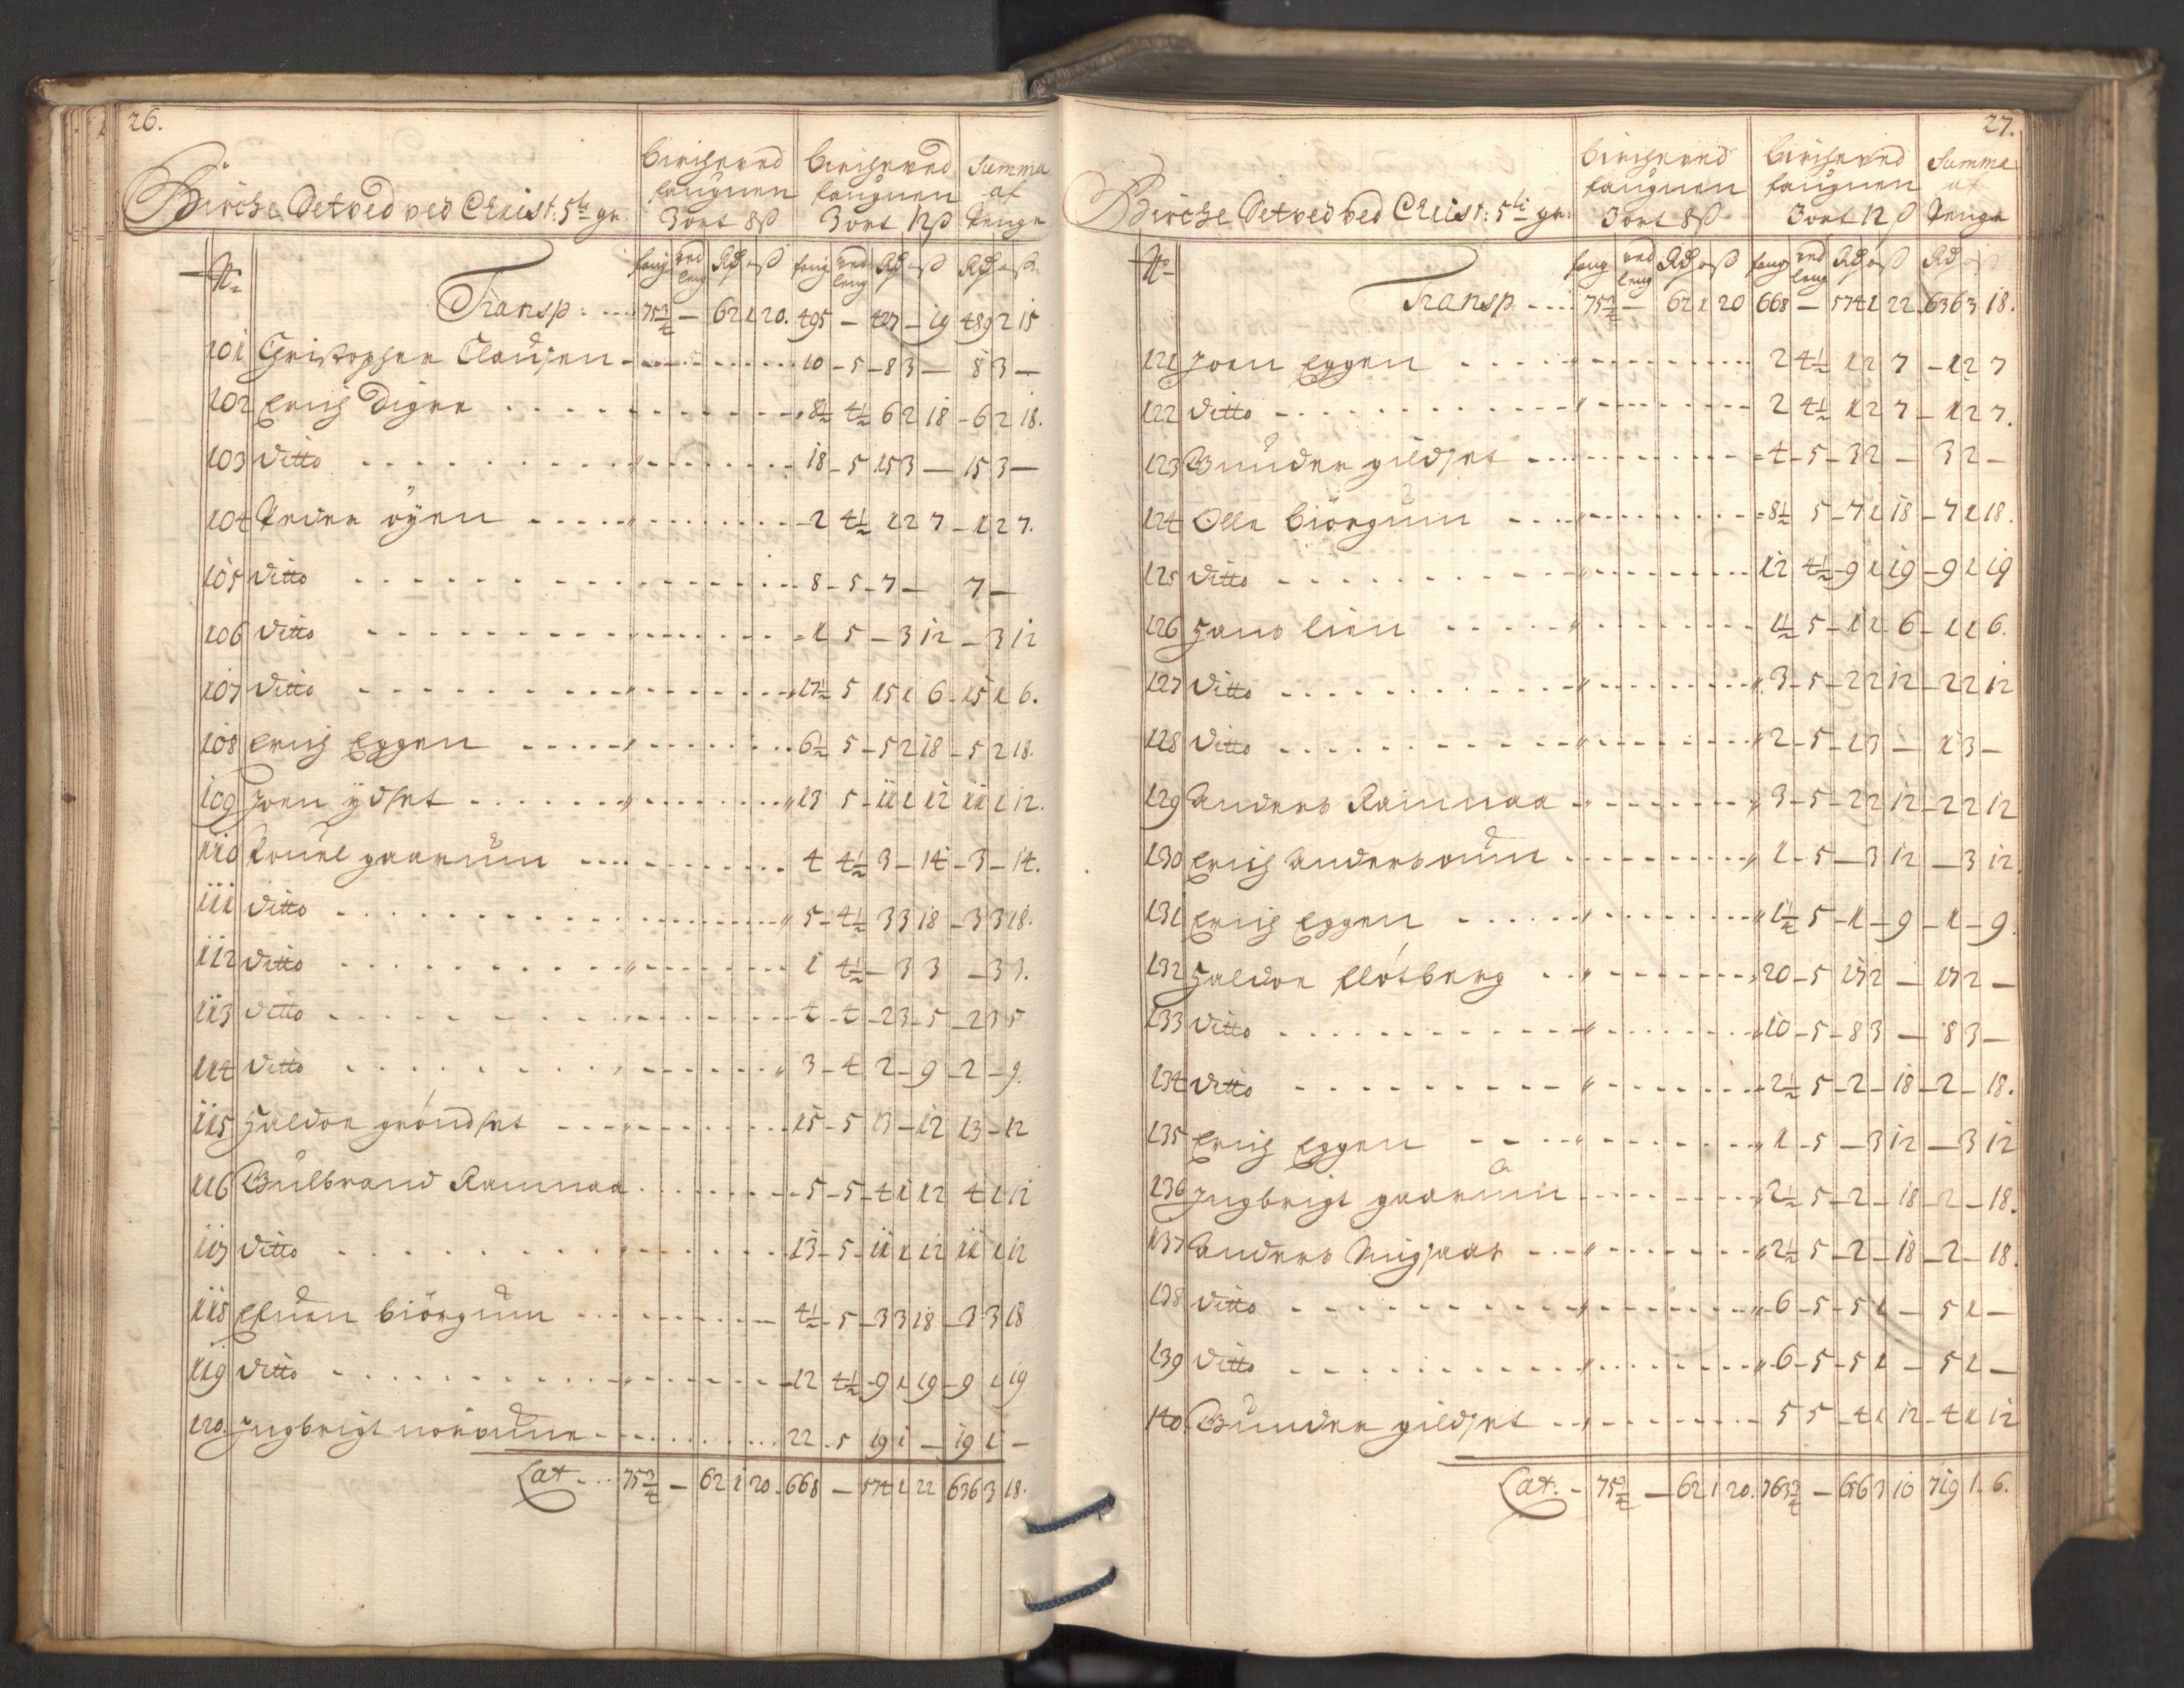 26.
Birche Setved ved Christ: 5ti gr.
Bircheved faugnen 3 ort 8 ß
Bircheved faugnen 3 ort 12 ß
Summa af Penge
No faug ved leng Rd o ß faug ved leng Rd o ß Rd o ß
Transp: 75 3/4 — 62 1 20. 495 — 427 — 19 489 2 15
101 Christopher Clausen 10 - 5 - 8 3 — 8 3 —
102 Erich Digre 8 1/2 4 1/2 6 2 18 - 6 2 18.
103 ditto 18 - 5 15 3 — 15 3 —
104 Peder öyen 2 4 1/2 1 2 7 - 1 2 7.
105 ditto 8 - 5 - 7 — 7 —
106 ditto 1 5 — 3 12 — 3 12
107 ditto 17 1/2 5 15 1 6 - 15 1 6.
108 Erich Eggen 6 1/2 5 - 5 2 18 - 5 2 18.
109 Joen ydset 13 5 - 11 1 12 11 1 12.
110 Pouel gaarum 4 4 1/2 3 - 14 - 3 - 14.
111 ditto 5 - 4 1/2 3 3 18 - 3 3 18.
112 ditto 1 4 1/2 - 3 3 - 3 3.
113 ditto 4 - 4 - 2 3 - 5 - 2 3 5
114 ditto 3 - 4 2 - 9 - 2 - 9.
115 Haldor gróndset 15 - 5 13 - 12 13 - 12
116 Gulbrand Ramnaa 5 - 5 - 4 1 12 4 1 12
117 ditto 13 - 5 - 11 1 12 11 1 12
118 Efuen biörgum 4 1/2 - 5 - 3 3 18 - 3 3 18
119 ditto 12 4 1/2 - 9 1 19 - 9 1 19
120. Ingbrigt 22 - 5 19 1 — 19 1 —
Lat 75 3/4 — 62 1 20. 668 — 574 1 22 636 3 18.
27.
Birche Setved ved Christ: 5ti gr:
Bircheved faugnen 3 ort 8 ß
Bircheved faugnen 3 ort 12 ß
Summa af Penge
No faug ved leng Rd o ß faug ved leng Rd o ß Rd o ß
Transp 75 3/4 — 62 1 20 668 — 574 1 22 636 3 18.
121 Joen Eggen 2 4 1/2 1 2 7 - 1 2 7
122 ditto 2 4 1/2 1 2 7 - 1 2 7.
123 Gunder gildset 4 - 5 - 3 2 — 3 2 —
124 Olle biörgum 8 1/2 5 - 7 1 18 - 7 1 18.
125 ditto 12 4 1/2 - 9 1 19 - 9 1 19
126 Hans lien 1 1/2 5 - 1 1 6 - 1 1 6.
127 ditto 3 - 5 - 2 2 12 - 2 2 12
128 ditto 2 - 5 - 1 3 — 1 3 —
129 Anders Ramnaa 3 - 5 - 2 2 12 - 2 2 12
130 Erich 1 - 5 — 3 12 — 3 12.
131 Erich Eggen 1 1/4 5 - 1 - 9 - 1 - 9.
132 Haldor flótberg 20 - 5 17 2 — 17 2 —
133 ditto 10 - 5 - 8 3 — 8 3 —
134 ditto 2 1/2 5 - 2 - 18 - 2 - 18.
135 Erich Eggen 1 - 5 — 3 12 — 3 12
136 Ingbrigt gaarum 2 1/2 5 - 2 - 18 - 2 - 18.
137 Anders 2 1/2 5 - 2 - 18 - 2 - 18.
138 ditto 6 - 5 - 5 1 — 5 1 —
139 ditto 6 - 5 - 5 1 — 5 1 —
140. Gunder gildset 5 5 - 4 1 12 - 4 1 12
Lat. 75 3/4 — 62 1 20. 763 3/4 — 656 3 10 719 1 6.